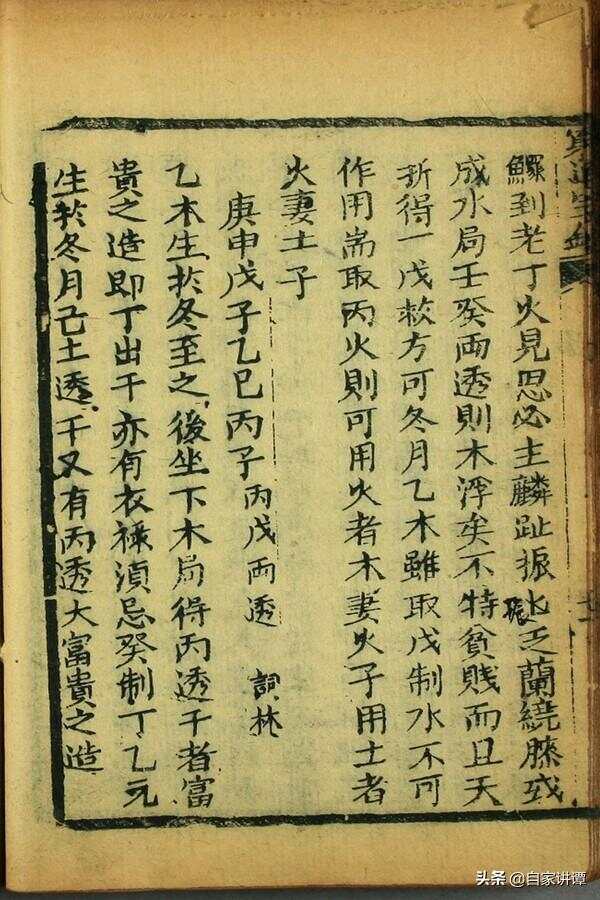 鰥到老丁火見忌必主麟趾振振芝蘭繞膝或
成水局壬癸両透則木浮矣不特貧賤而且夭
折得一戊救方可冬月乙木雖取戊制水不可
作用耑取丙火則可用火者木妻火子用土者
火妻土子
庚申戊子乙巳丙子丙戊両透 詞林
乙木生於冬至之後坐下木局得丙透干者富
貴之造即丁出干亦有衣禄湏忌癸制丁乙元
生於冬月己土透干又有丙透大富貴之造
头条 @自家讲谭